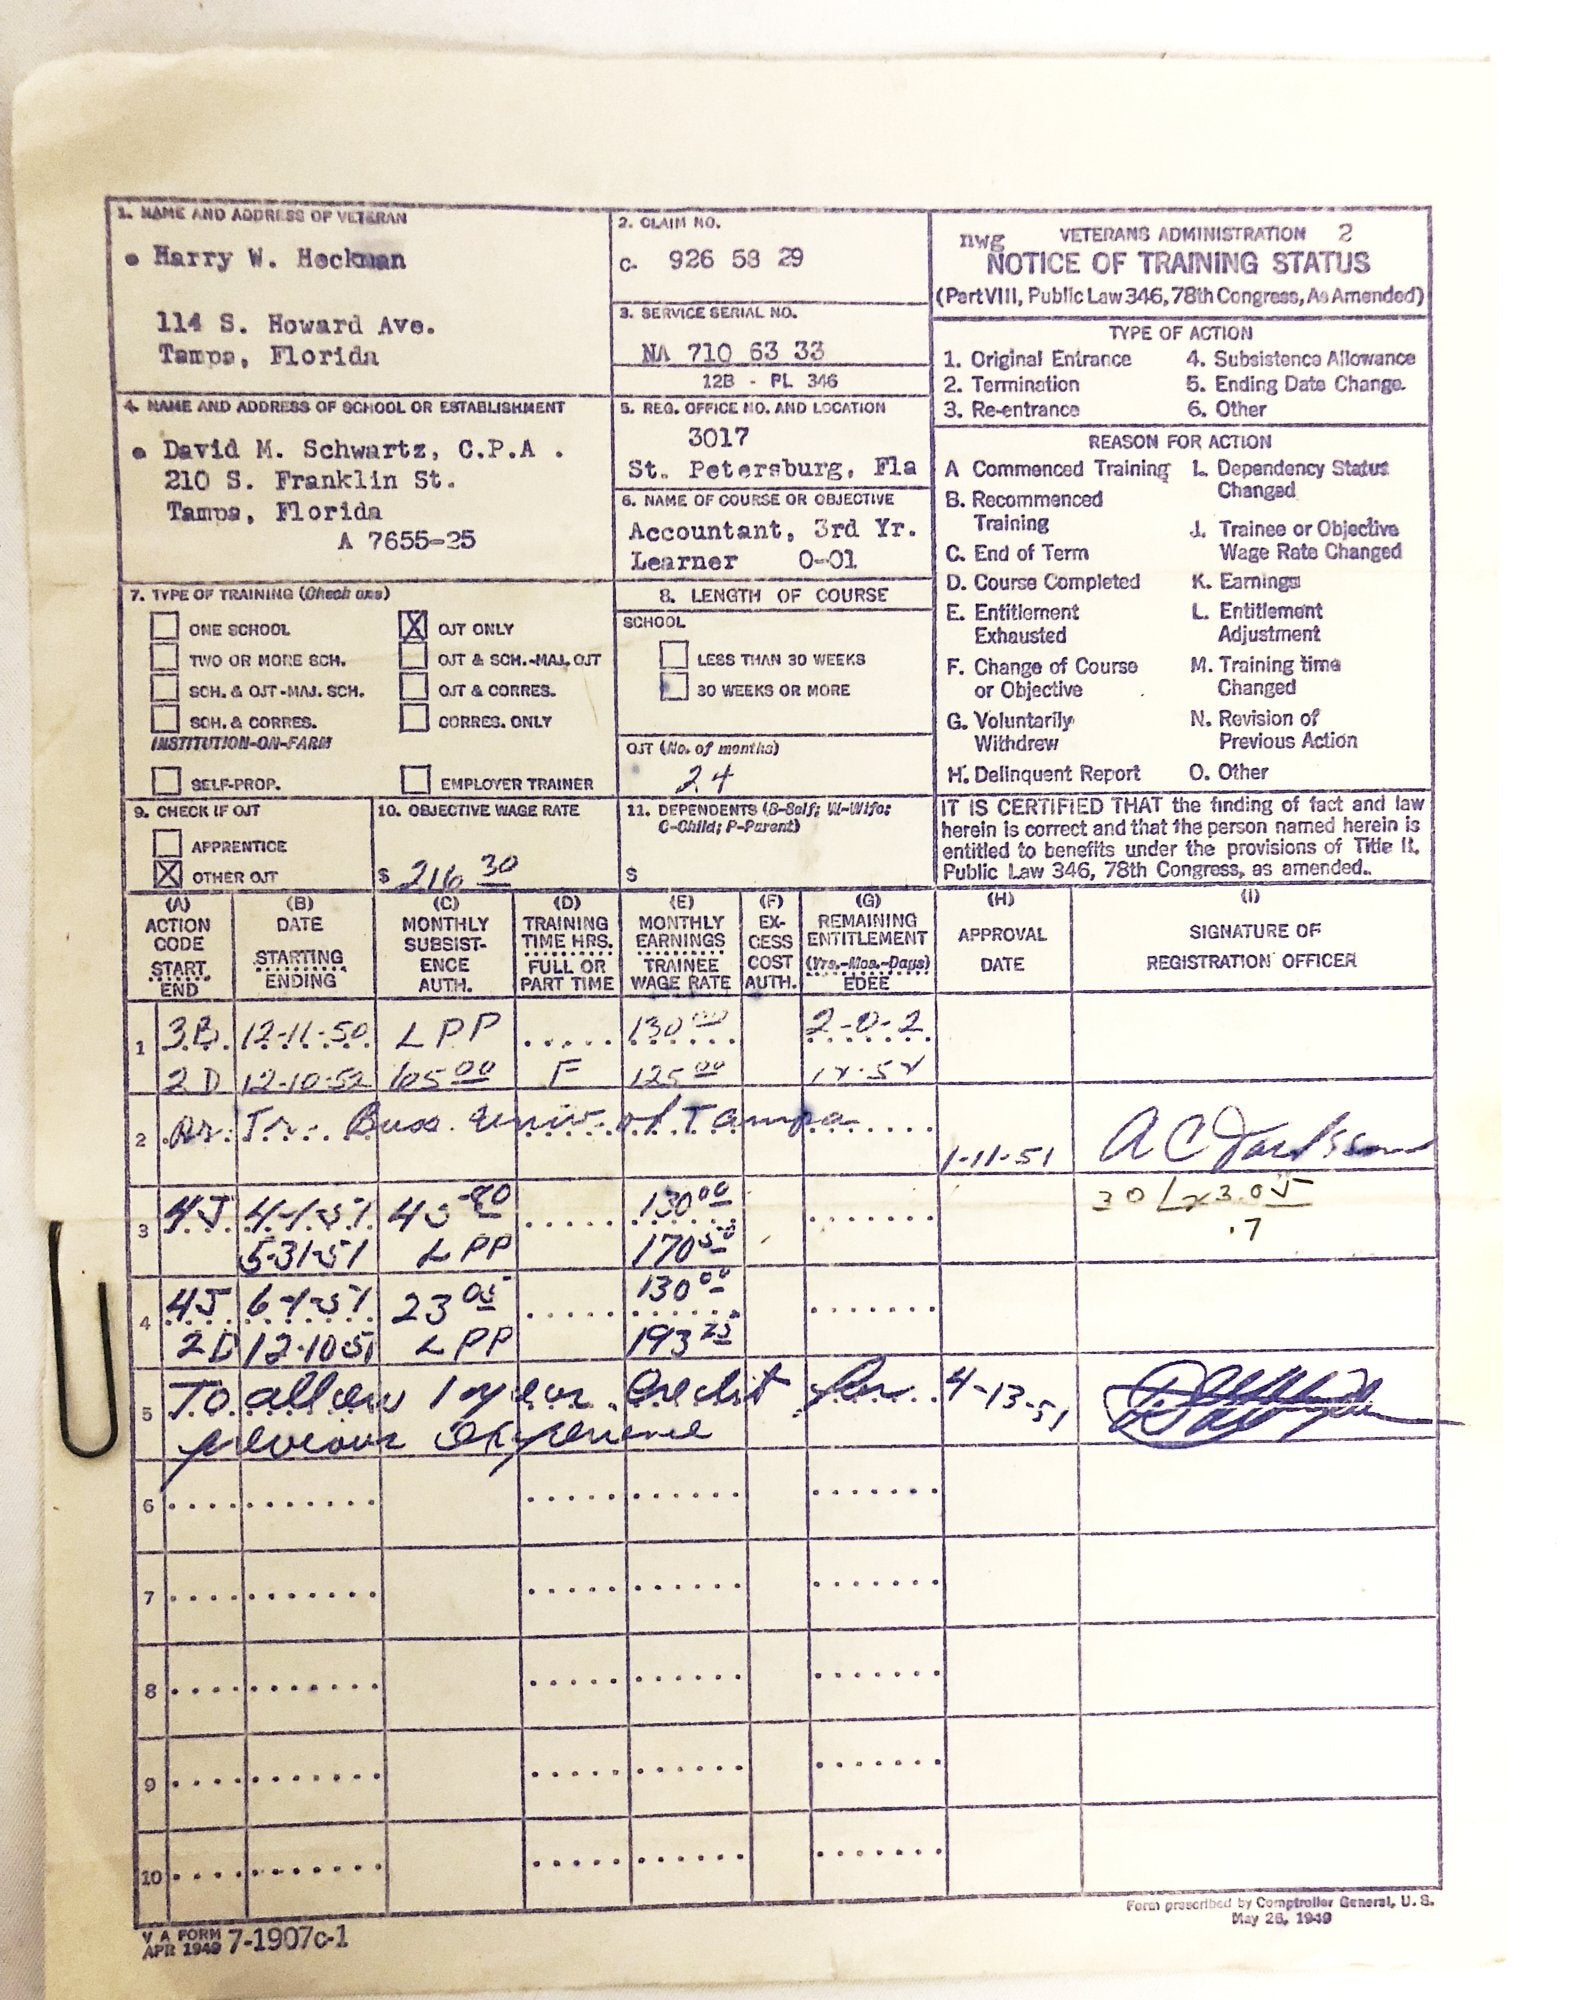 1. NAME AND ADDRESS OF VETERAN
Harry W. Heckman
114 S. Howard Ave.
Tampa, Florida
2. CLAIM NO.
C- 926 58 29
3. SERVICE SERIAL NO.
NA 710 63 33
12B - PL 346
nwg VETERANS ADMINISTRATION 2
NOTICE OF TRAINING STATUS
(Part VIII, Public Law 346, 78th Congress, As Amended)
TYPE OF ACTION
1. Original Entrance 4. Subsistence Allowance
2. Termination 5. Ending Date Change.
3. Re-entrance 6. Other
4. NAME AND ADDRESS OF SCHOOL OR ESTABLISHMENT
David M. Schwartz, C.P.A .
210 S. Franklin St.
Tampa, Florida
A 7655-25
5. REG. OFFICE NO. AND LOCATION
3017
St. Petersburg, Fla
6. NAME OF COURSE OR OBJECTIVE
Accountant, 3rd Yr.
Learner 0-01
REASON FOR ACTION
A Commenced Training
B. Recommenced
Training
C. End of Term
D. Course Completed
E. Entitlement
Exhausted
F. Change of Course
or Objective
G. Voluntarily
Withdrew
H. Delinquent Report
I. Dependency Status
Changed
J. Trainee or Objective
Wage Rate Changed
K. Earnings
L. Entitlement
Adjustment
M. Training time
Changed
N. Revision of
Previous Action
O. Other
7. TYPE OF TRAINING (Check one)
ONE SCHOOL X OJT ONLY
TWO OR MORE SCH. OJT & SCH.-MAJ. OJT
SCH. & OJT-MAJ. SCH. OJT & CORRES.
SCH. & CORRES. CORRES. ONLY
INSTITUTION-ON-FARM
SELF-PROP. EMPLOYER TRAINER
8. LENGTH OF COURSE
SCHOOL
LESS THAN 30 WEEKS
30 WEEKS OR MORE
OJT (No. of months)
24
9. CHECK IF OJT
APPRENTICE
X OTHER OJT
10. OBJECTIVE WAGE RATE
$ 216 30
11. DEPENDENTS (S-Self; W-Wife;
C-Child; P-Parent)
$
IT IS CERTIFIED THAT the finding of fact and law
herein is correct and that the person named herein is
entitled to benefits under the provisions of Title II,
Public Law 346, 78th Congress, as amended.
(A)
ACTION
CODE
START
END
(B)
DATE
STARTING
ENDING
(C)
MONTHLY
SUBSIST-
ENCE
AUTH.
(D)
TRAINING
TIME HRS.
FULL OR
PART TIME
(E)
MONTHLY
EARNINGS
TRAINEE
WAGE RATE
(F)
EX-
CESS
COST
AUTH.
(G)
REMAINING
ENTITLEMENT
(Yrs.-Mos.-Days)
EDEE
(H)
APPROVAL
DATE
(I)
SIGNATURE OF
REGISTRATION OFFICER
1 3B 12-11-50 LPP 130 00 2-0-2
2D 12-10-52 65 00 F 125 00
2 Tr. Buss. Univ. of Tampa 1-11-51
3 4J 4-1-51 45 80 130 00 30
5-31-51 LPP 170 50 .7
4 4J 6-1-51 23 05 130 00
2D 12-10-51 LPP 193 25
5 To allow 1 year credit for 4-13-51
previous experience
6
7
8
9
10
V A FORM
APR 1949 7-1907c-1
Form prescribed by Comptroller General, U. S.
May 26, 1949